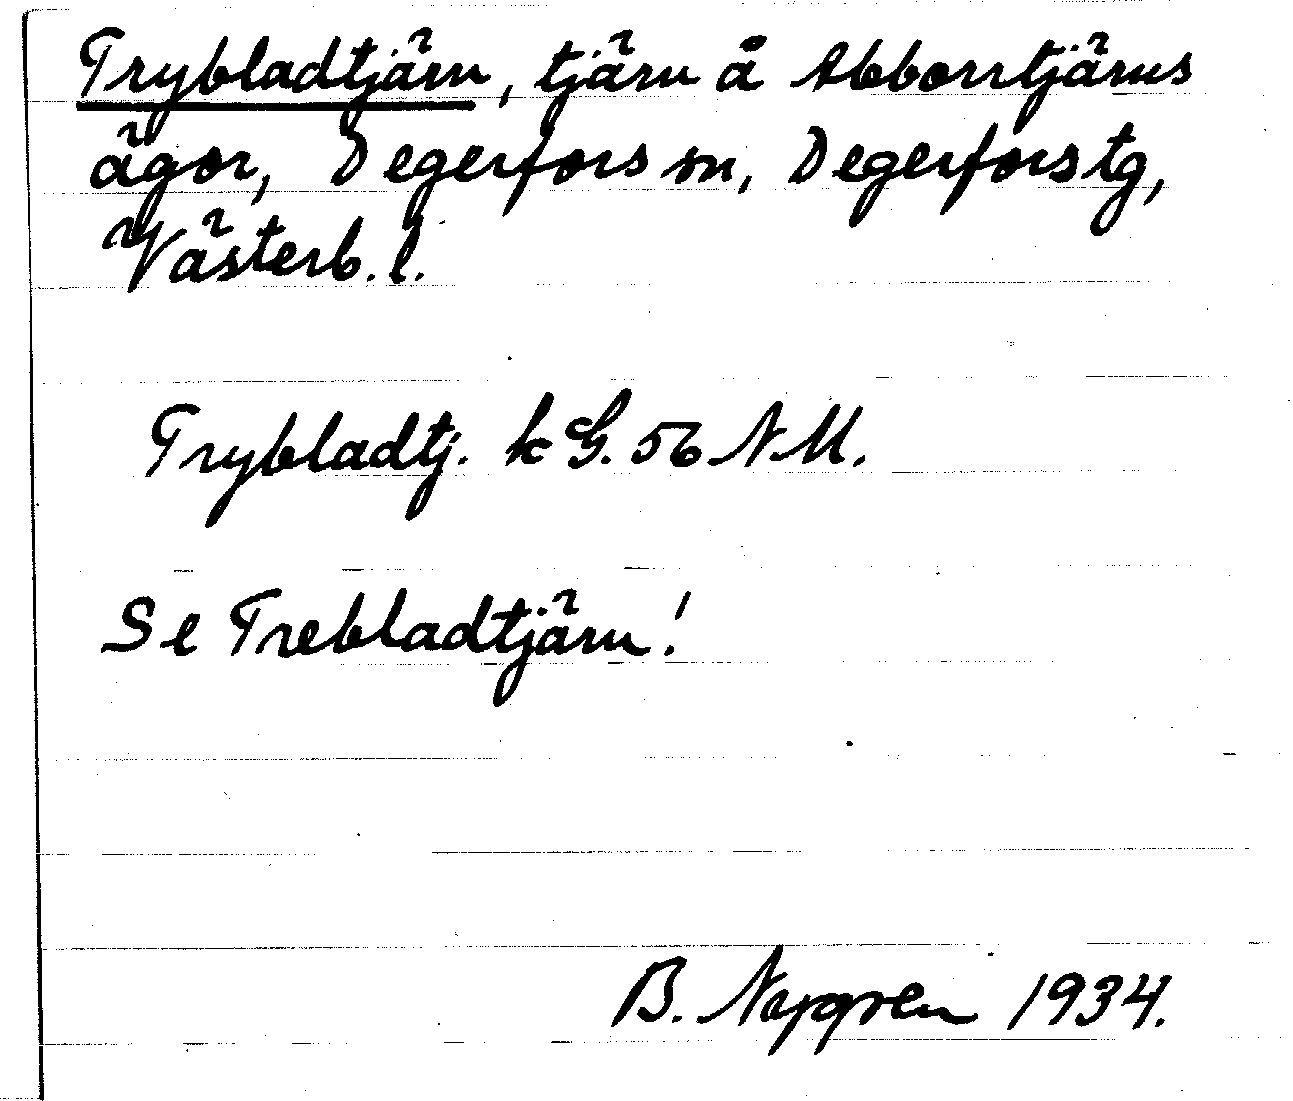 Trybladtjärn, tjärn å Abborrtjärns
ägor, Degerfors sn, Degerfors tg,
Västerb. l.
Trybladtj. k G. 56 N M.
Se Trebladtjärn!
B. Nygren 1934.